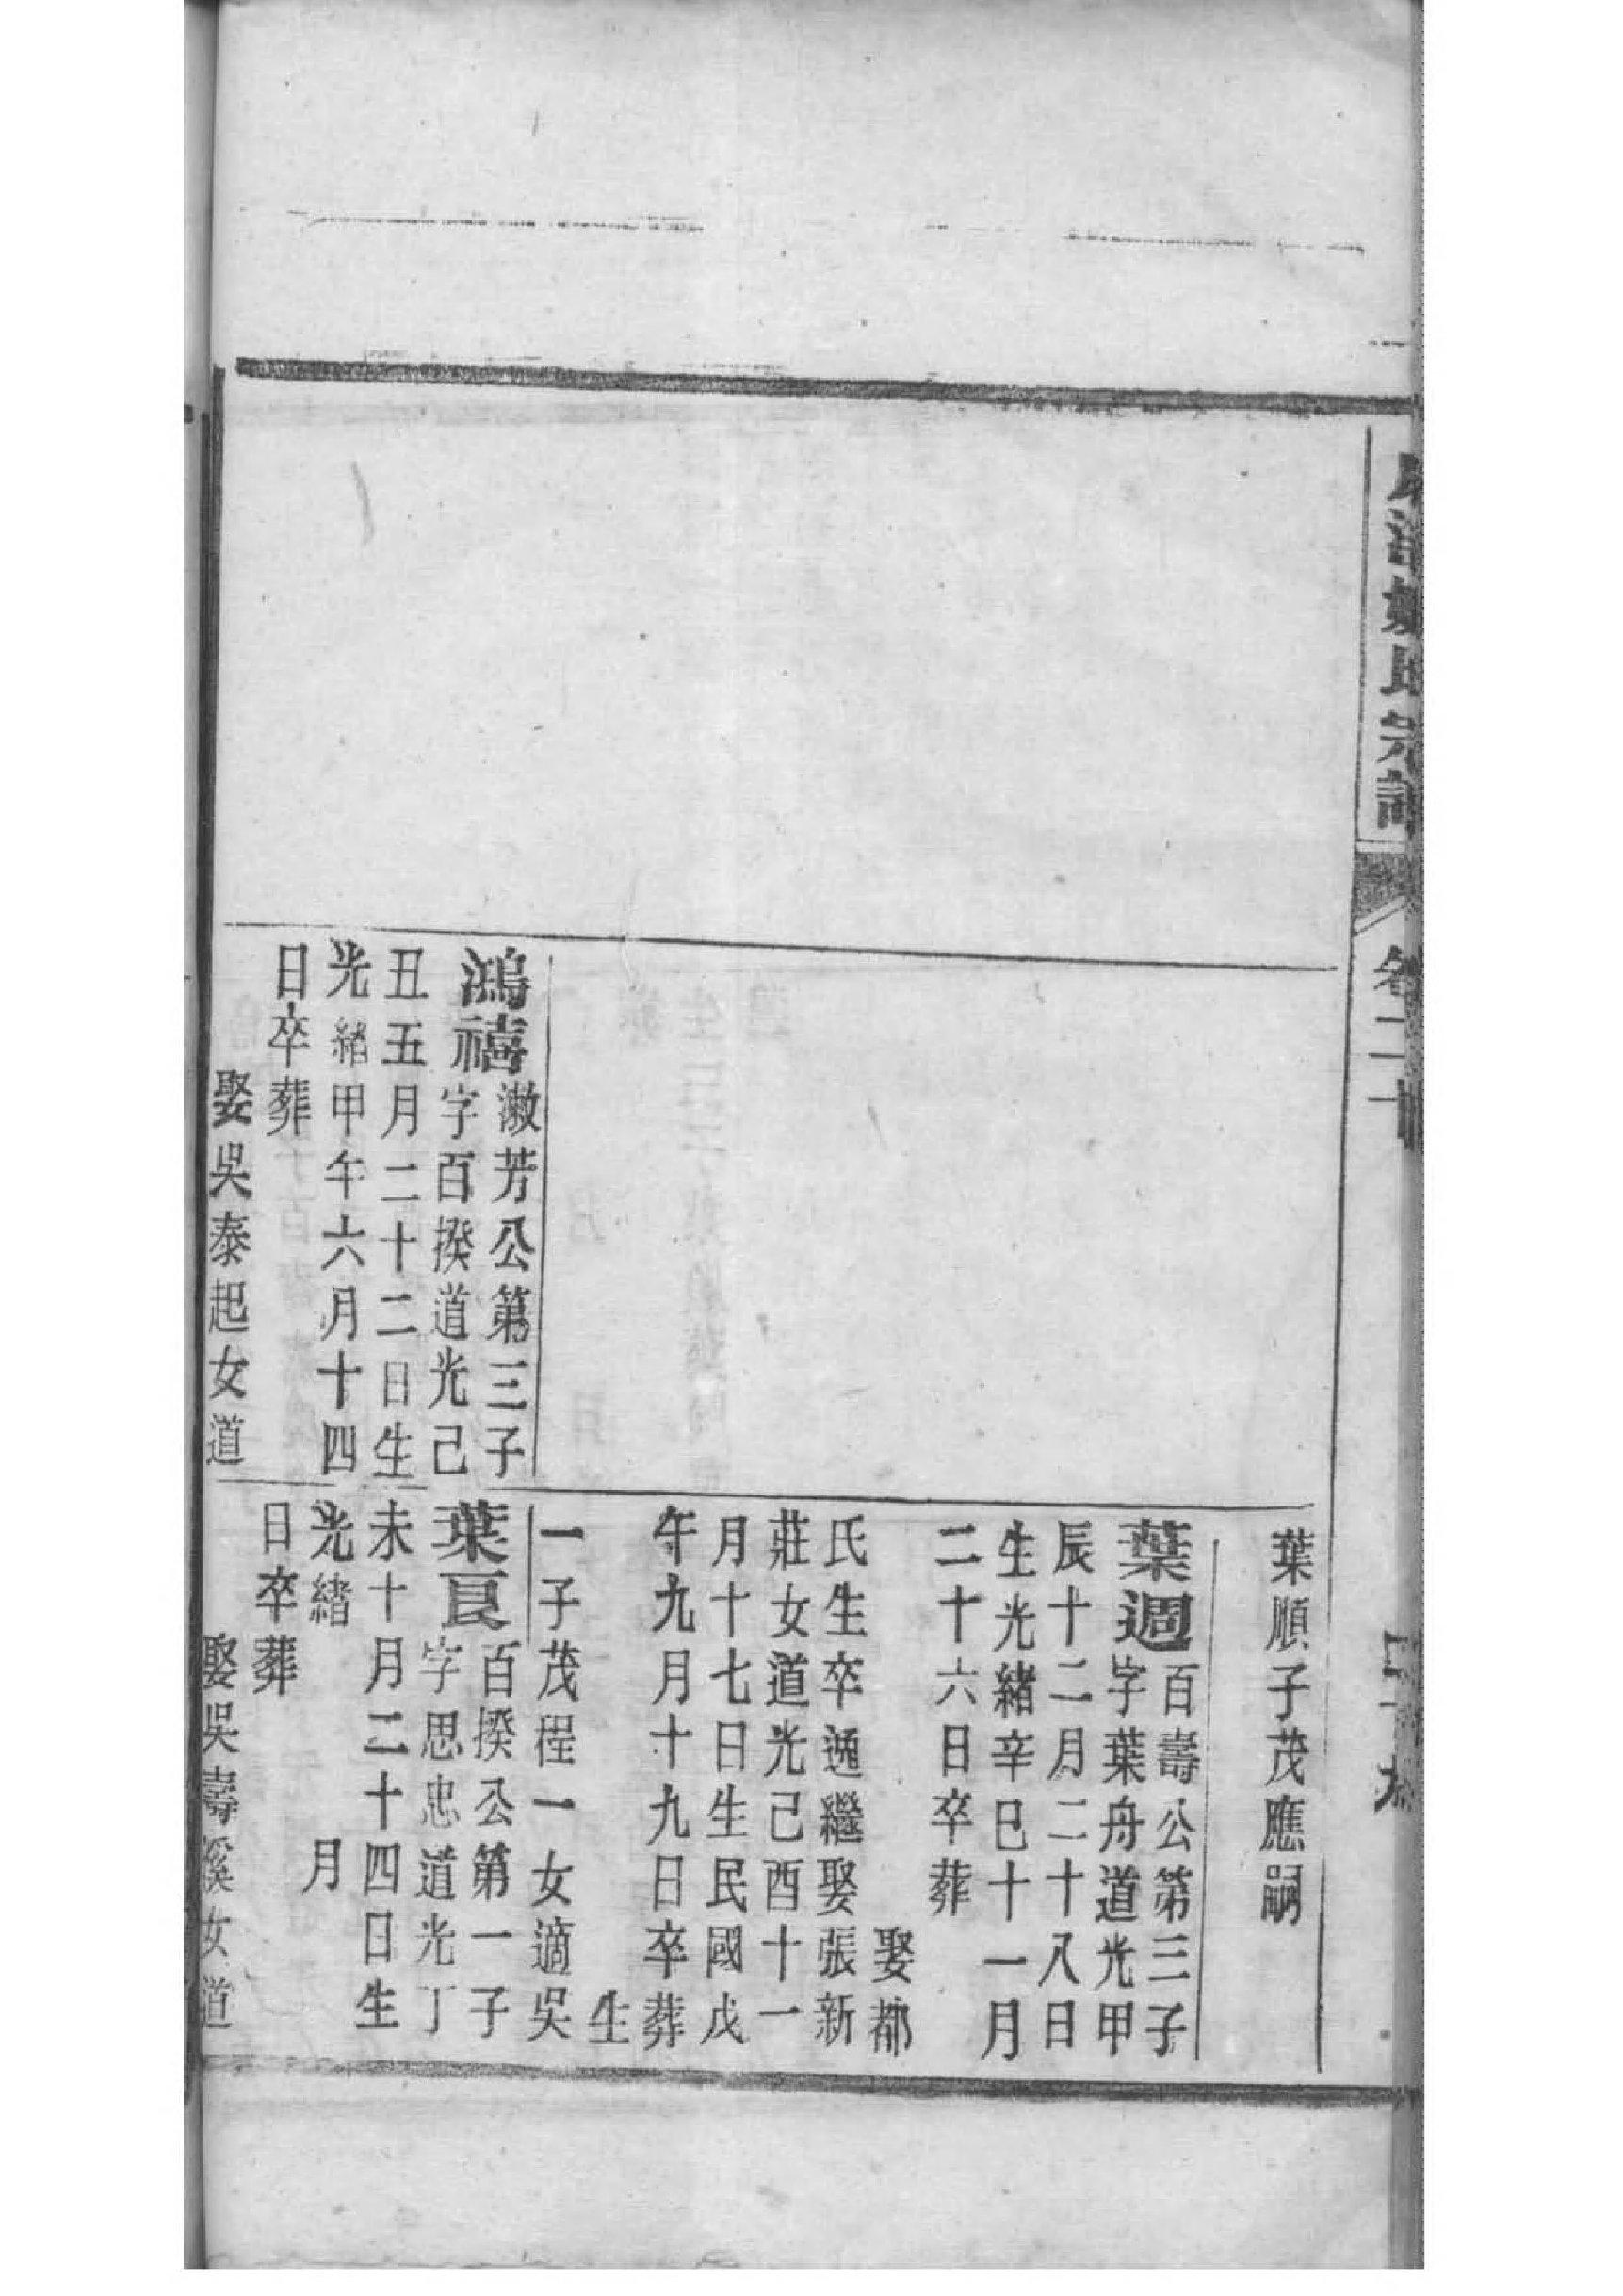 氏宗譜
卷二十
鴻禧
漱芳公第三子
字百揆道光己
丑五月二十二日生
光緒甲午六月十四
日卒葬
娶吳泰起女道
葉順子茂應嗣
葉週
百壽公第三子
字葉舟道光甲
辰十二月二十八日
生光緒辛巳十一月
二十六日卒葬
娶都
氏生卒逸繼娶張新
莊女道光己酉十一
月十七日生民國戊
午九月十九日卒葬
生
一子茂程一女適吳
葉
百揆公第一子
字思忠道光丁
未十月二十四日生
光緒 月
日卒葬
娶吳壽溪女道